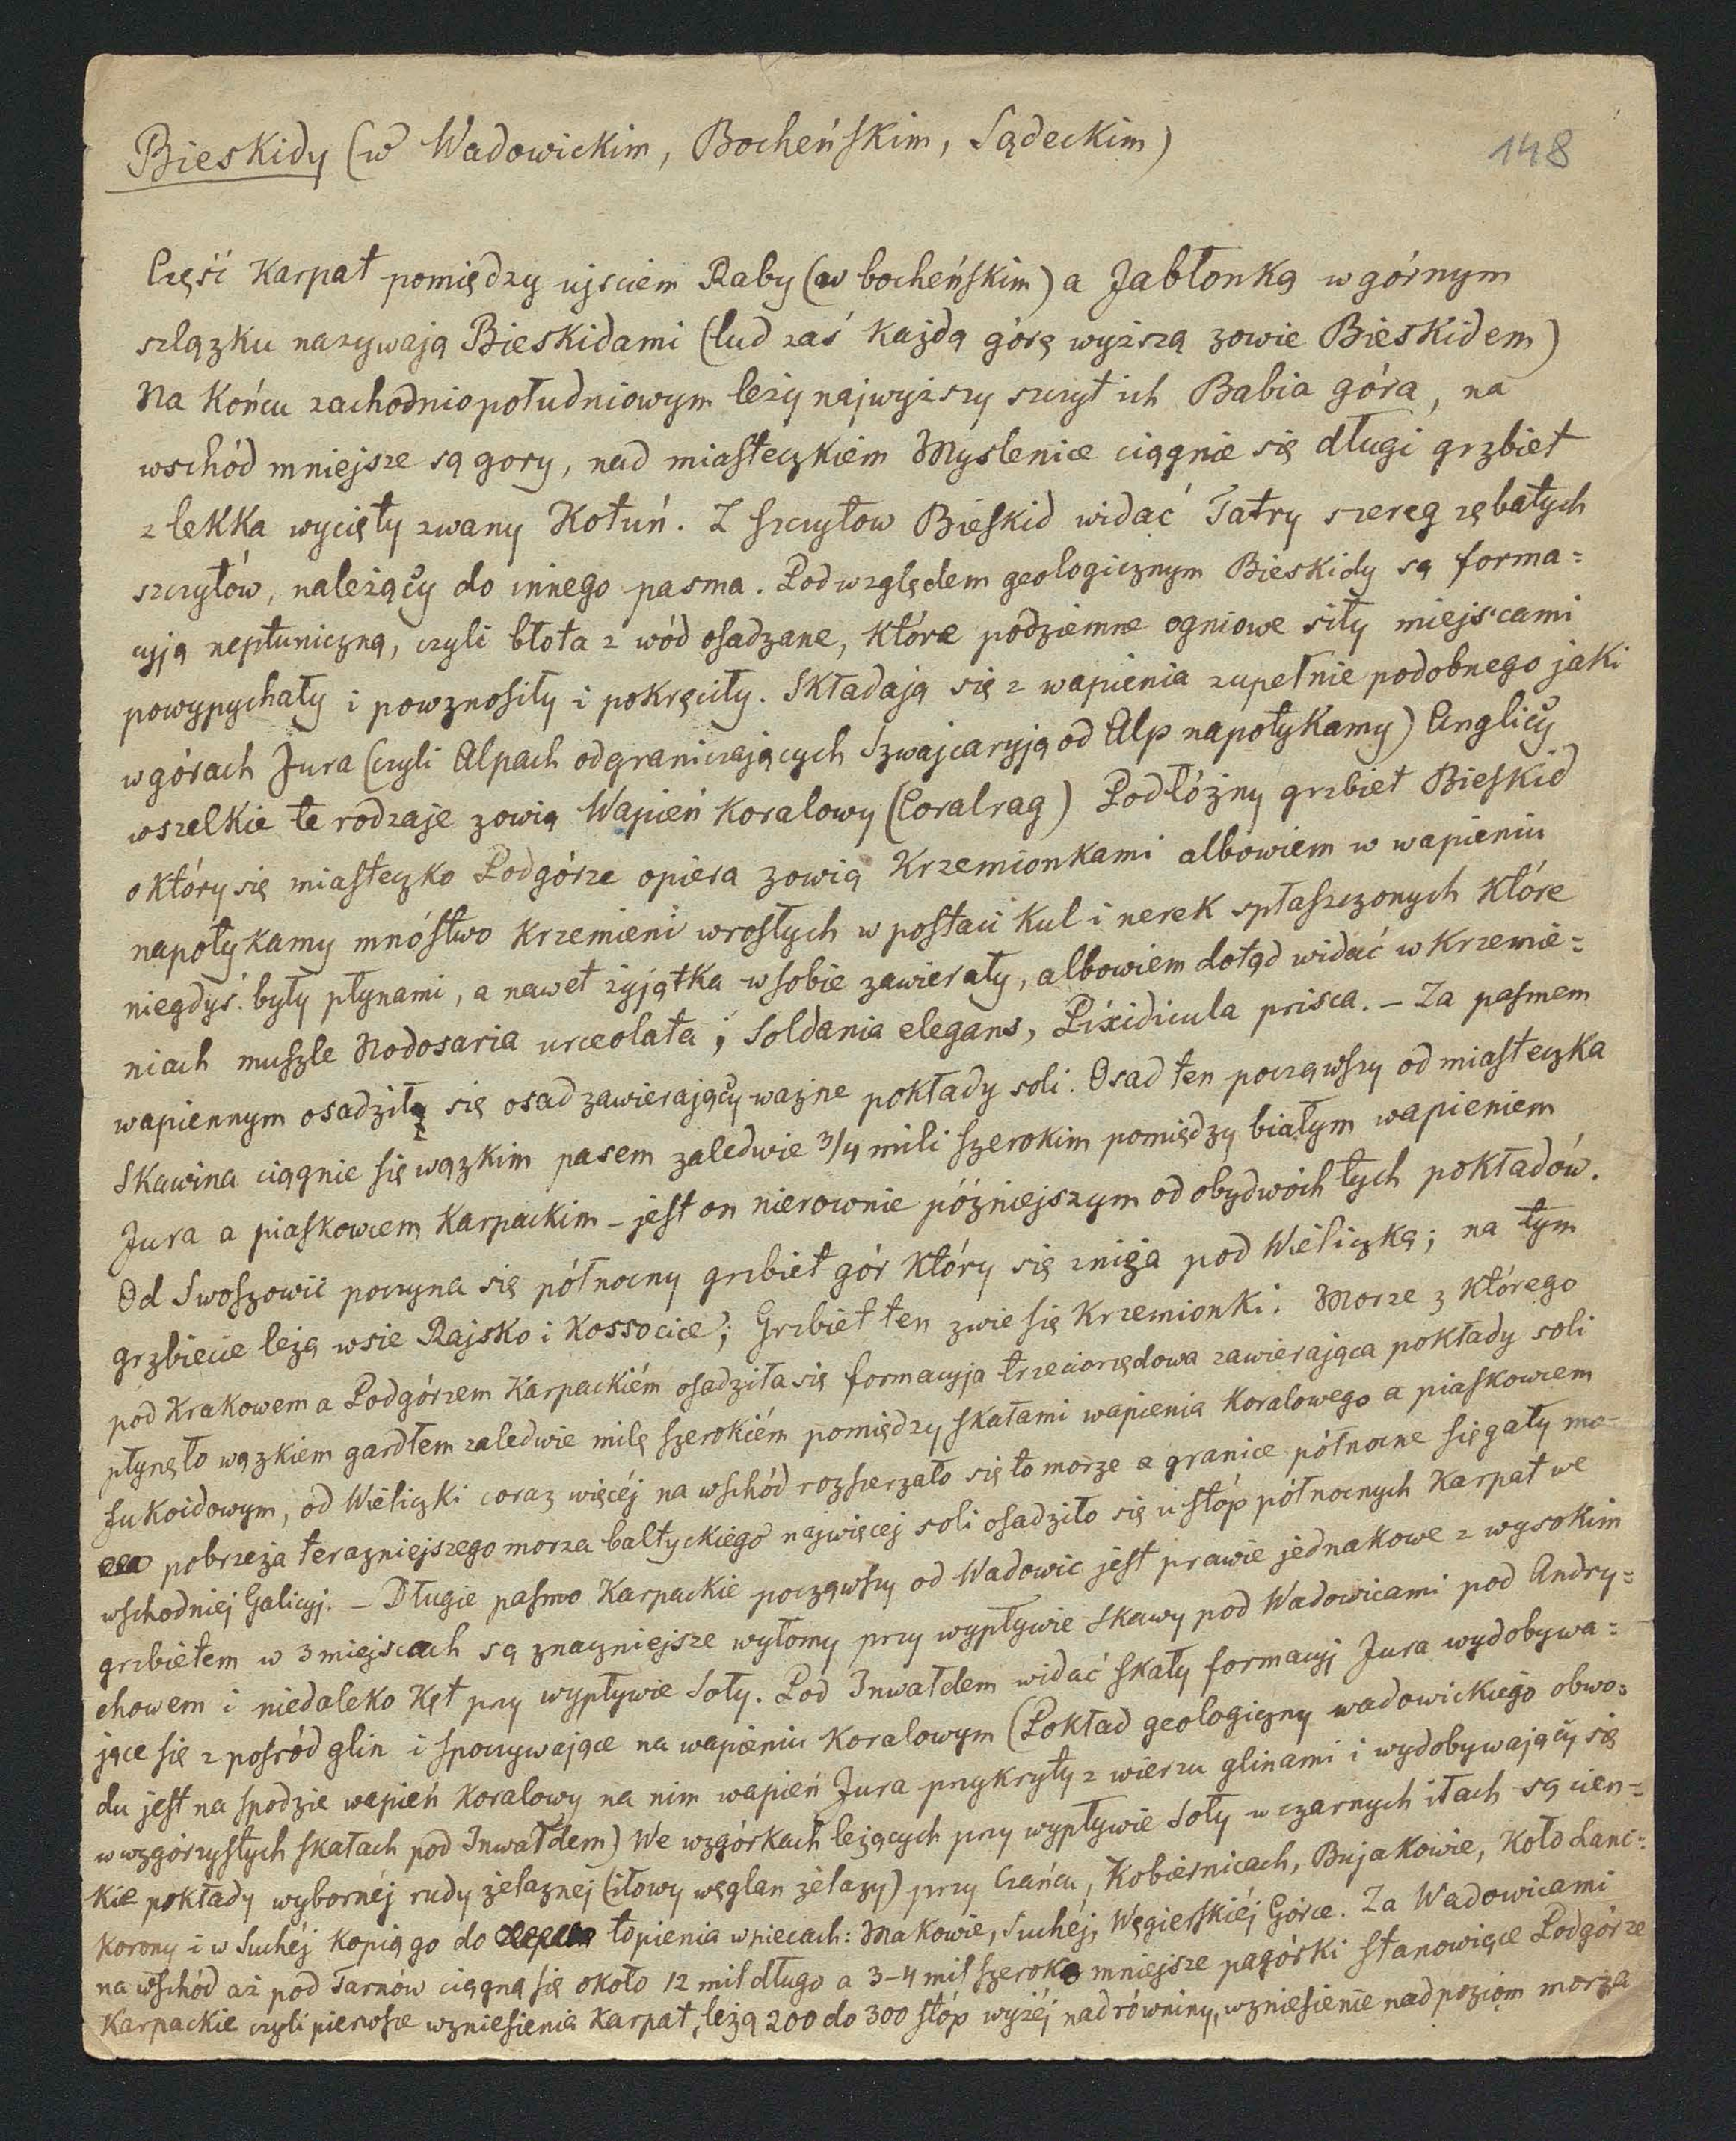 Bieskidy (w Wadowickim, Bocheńskim, Sądeckim)
148
Część Karpat pomiędzy ujsciem Raby (w bocheńskim) a Jabłonką w górnym
szlązku nazywają Bieskidami (lud zaś każdą górę wyższą zowie Bieskidem)
Na końcu zachodniopołudniowym leży najwyższy szczyt ich Babia góra, na
wschód mniejsze są gory, nad miasteczkiem Myslenice ciągnie się długi grzbiet
z lekka wycięty zwany Kotuń. Z szczytow Bieskid widać Tatry szereg zębatych
szczytów, należący do innego pasma. Pod względem geologicznym Bieskidy są forma=
cyją neptuniczną, czyli błota z wód osadzane, które podziemne ogniowe siły miejscami
powypychały i powznosiły i pokręciły. Składają się z wapienia zupełnie podobnego jaki
w górach Jura (czyli Alpach odgraniczających Szwajcaryją od Alp napotykamy) Anglicy
wszelkie te rodzaje zowią Wapień koralowy (Coralrag) Podłóżny grzbiet Bieskid
o który się miasteczko Podgórze opiera zowią Krzemionkami albowiem w wapieniu
napotykamy mnóstwo krzemieni wrostych w postaci kul i nerek spłaszczonych które
niegdyś były płynami, a nawet żyjątka w sobie zawierały, albowiem dotąd widać w krzemie=
niach muszle Nodosaria urceolata; Soldania elegans, Pixidicula prisca. – Za pasmem
wapiennym osadził się osad zawierający ważne pokłady soli. Osad ten począwszy od miasteczka
Skawina ciągnie się wązkim pasem zaledwie 3/4 mili szerokim pomiędzy białym wapieniem
Jura a piaskowcem Karpackim – jest on nierownie późniejszym od obydwóch tych pokładów.
Od Swoszowic poczyna się północny grzbiet gór który się zniża pod Wieliczką; na tym
grzbiecie leżą wsie Rajsko i Kossocice; Grzbiet ten zwie się Krzemionki. Morze z którego
pod Krakowem a Podgórzem Karpackiém osadziła się formacyja trzeciorzędowa zawierająca pokłady soli
płynęło wązkiem gardłem zaledwie milę szerokiém pomiędzy skałami wapienia koralowego a piaskowcem
fukoidowym, od Wieliczki coraz więcéj na wschód rozszerzało się to morze a granice północne sięgały mo-
pobrzeża terazniejszego morza baltyckiego najwięcej soli osadziło się u stóp północnych Karpat we
wschodniej Galicyj. – Długie pasmo Karpackie począwszy od Wadowic jest prawie jednakowe z wysokim
grzbietem w 3 miejscach są znaczniejsze wyłomy przy wypływie Skawy pod Wadowicami pod Andry=
chowem i niedaleko Kęt przy wypływie Soły. Pod Inwałdem widać skały formacyj Jura wydobywa=
jące się z pośród glin i spoczywające na wapieniu koralowym (Pokład geologiczny wadowickiego obwo=
du jest na spodzie wapień koralowy na nim wapień Jura przykryty z wierzu glinami i wydobywający się
w wzgórzystych skałach pod Inwałdem) We wzgórkach leżących przy wypływie Soły w czarnych iłach są cien=
kie pokłady wybornéj rudy żelaznej (iłowy węglan żelazy) przy Czańcu, Kobiernicach, Bujakowie, Koło Lanc=
korony i w Suchéj kopią go do topienia w piecach: Makowie, Suchéj, Węgierskiéj Górce. Za Wadowicami
na wschód aż pod Tarnów ciągną się około 12 mil długo a 3–4 mil szeroko mniejsze pagórki stanowiące Podgórze
Karpackie czyli pierwsze wzniesienia Karpat, leżą 200 do 300 stóp wyżéj nad równiny, wzniesienie nad poziom morza